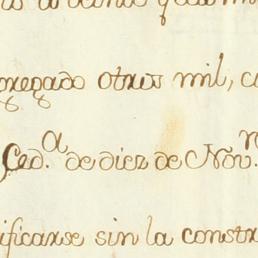 oregado otros mil, c
Ced.a de diez de Nov.
ificarse sin la constr